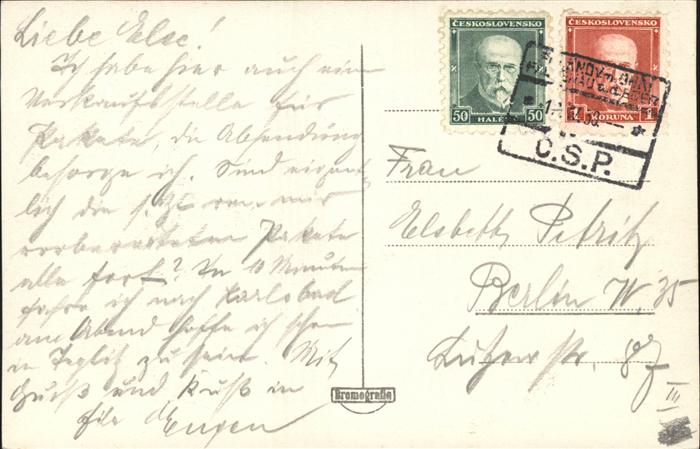 Liebe Else!
Ich habe hier auch eine
Verkaufsstelle für
Pakete, die Absendung
besorge ich. Sind eigent-
lich die s. Zt. von mir
vorbereiteten Pakete
alle fort? In 10 Minuten
fahre ich nach Karlsbad
am Abend hoffe ich schon
in Teplitz zu sein. Mit
Gruß und Kuß in
Eile Eugen
ČESKOSLOVENSKO
50 HALÉŘ 50
ČESKOSLOVENSKO
KORUNA 1
Č.S.P.
Frau
Elsbeth Petritz
Berlin W. 35
Lützowstr. 87
III
Bromografia